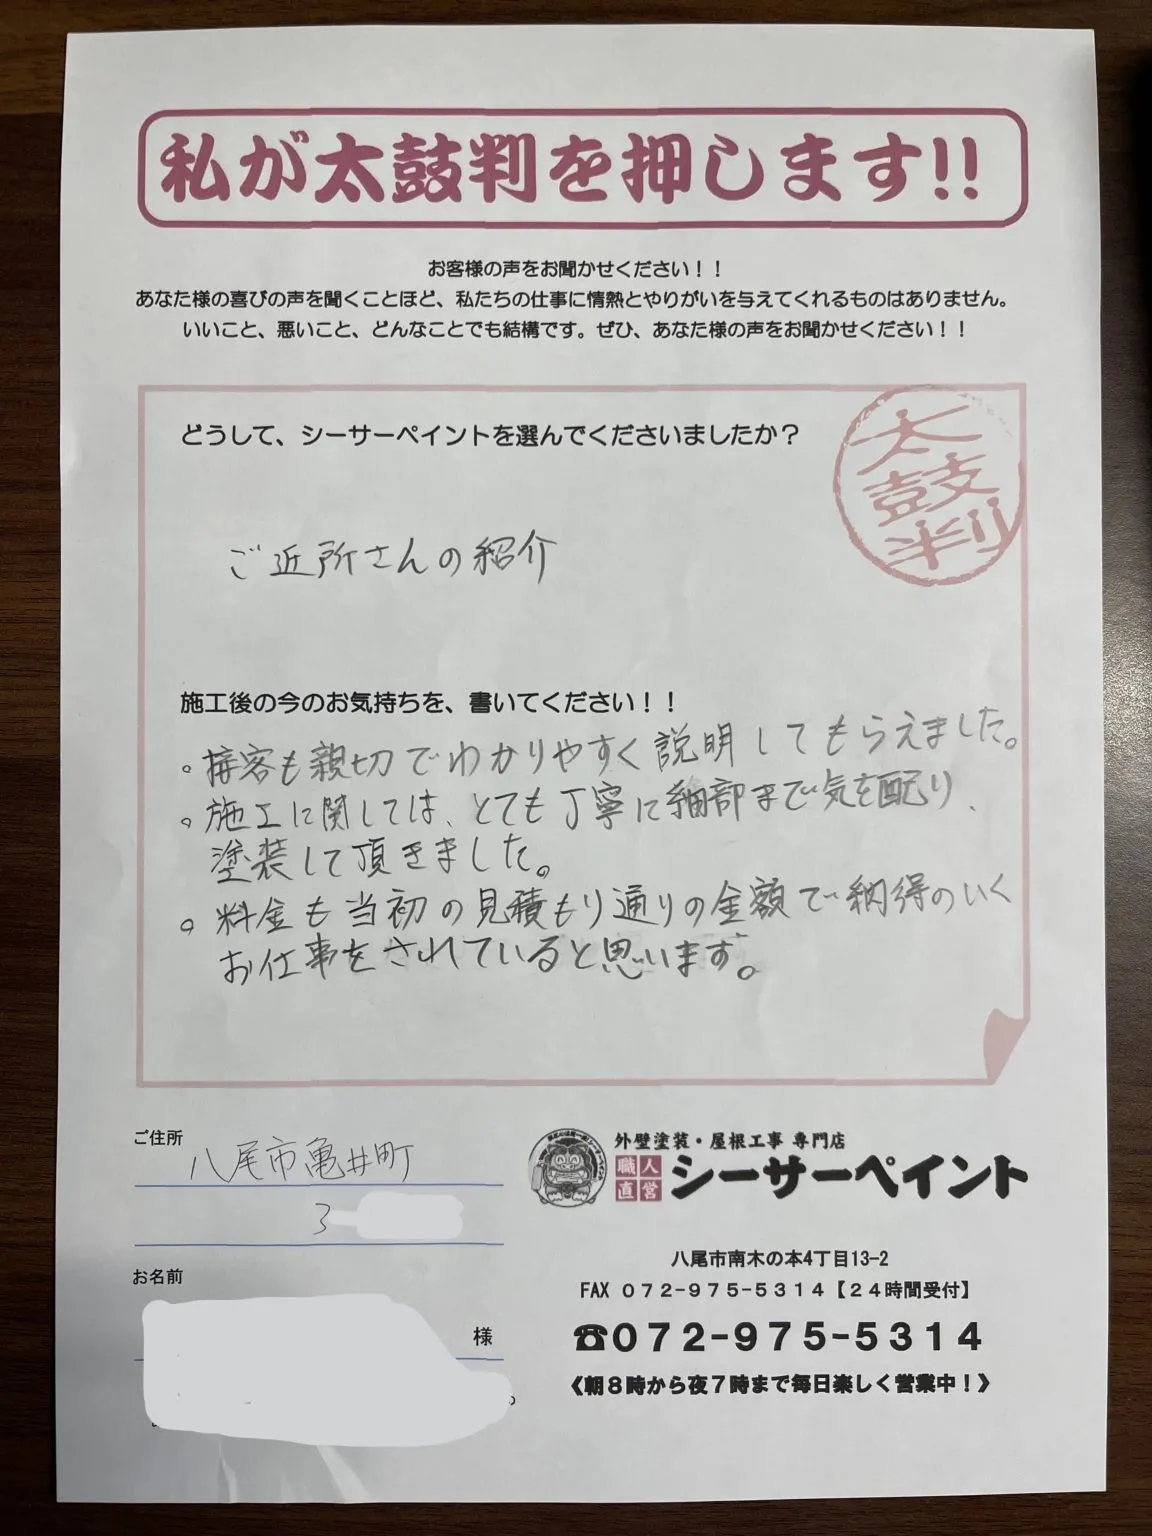 私が太鼓判を押します!!
お客様の声をお聞かせください！！
あなた様の喜びの声を聞くことほど、私たちの仕事に情熱とやりがいを与えてくれるものはありません。
いいこと、悪いこと、どんなことでも結構です。ぜひ、あなた様の声をお聞かせください！！
どうして、シーサーペイントを選んでくださいましたか？
太
鼓
判
ご近所さんの紹介
施工後の今のお気持ちを、書いてください！！
。接客も親切でわかりやすく説明してもらえました。
。施工に関しては、とても丁寧に細部まで気を配り、
塗装して頂きました。
。料金も当初の見積もり通りの金額で納得のいく
お仕事をされていると思います。
ご住所
八尾市亀井町
3-
お名前
様
外壁塗装・屋根工事 専門店
職人
直営
シーサーペイント
八尾市南木の本4丁目13-2
FAX ０７２-９７５-５３１４【２４時間受付】
☎０７２-９７５-５３１４
《朝８時から夜７時まで毎日楽しく営業中！》